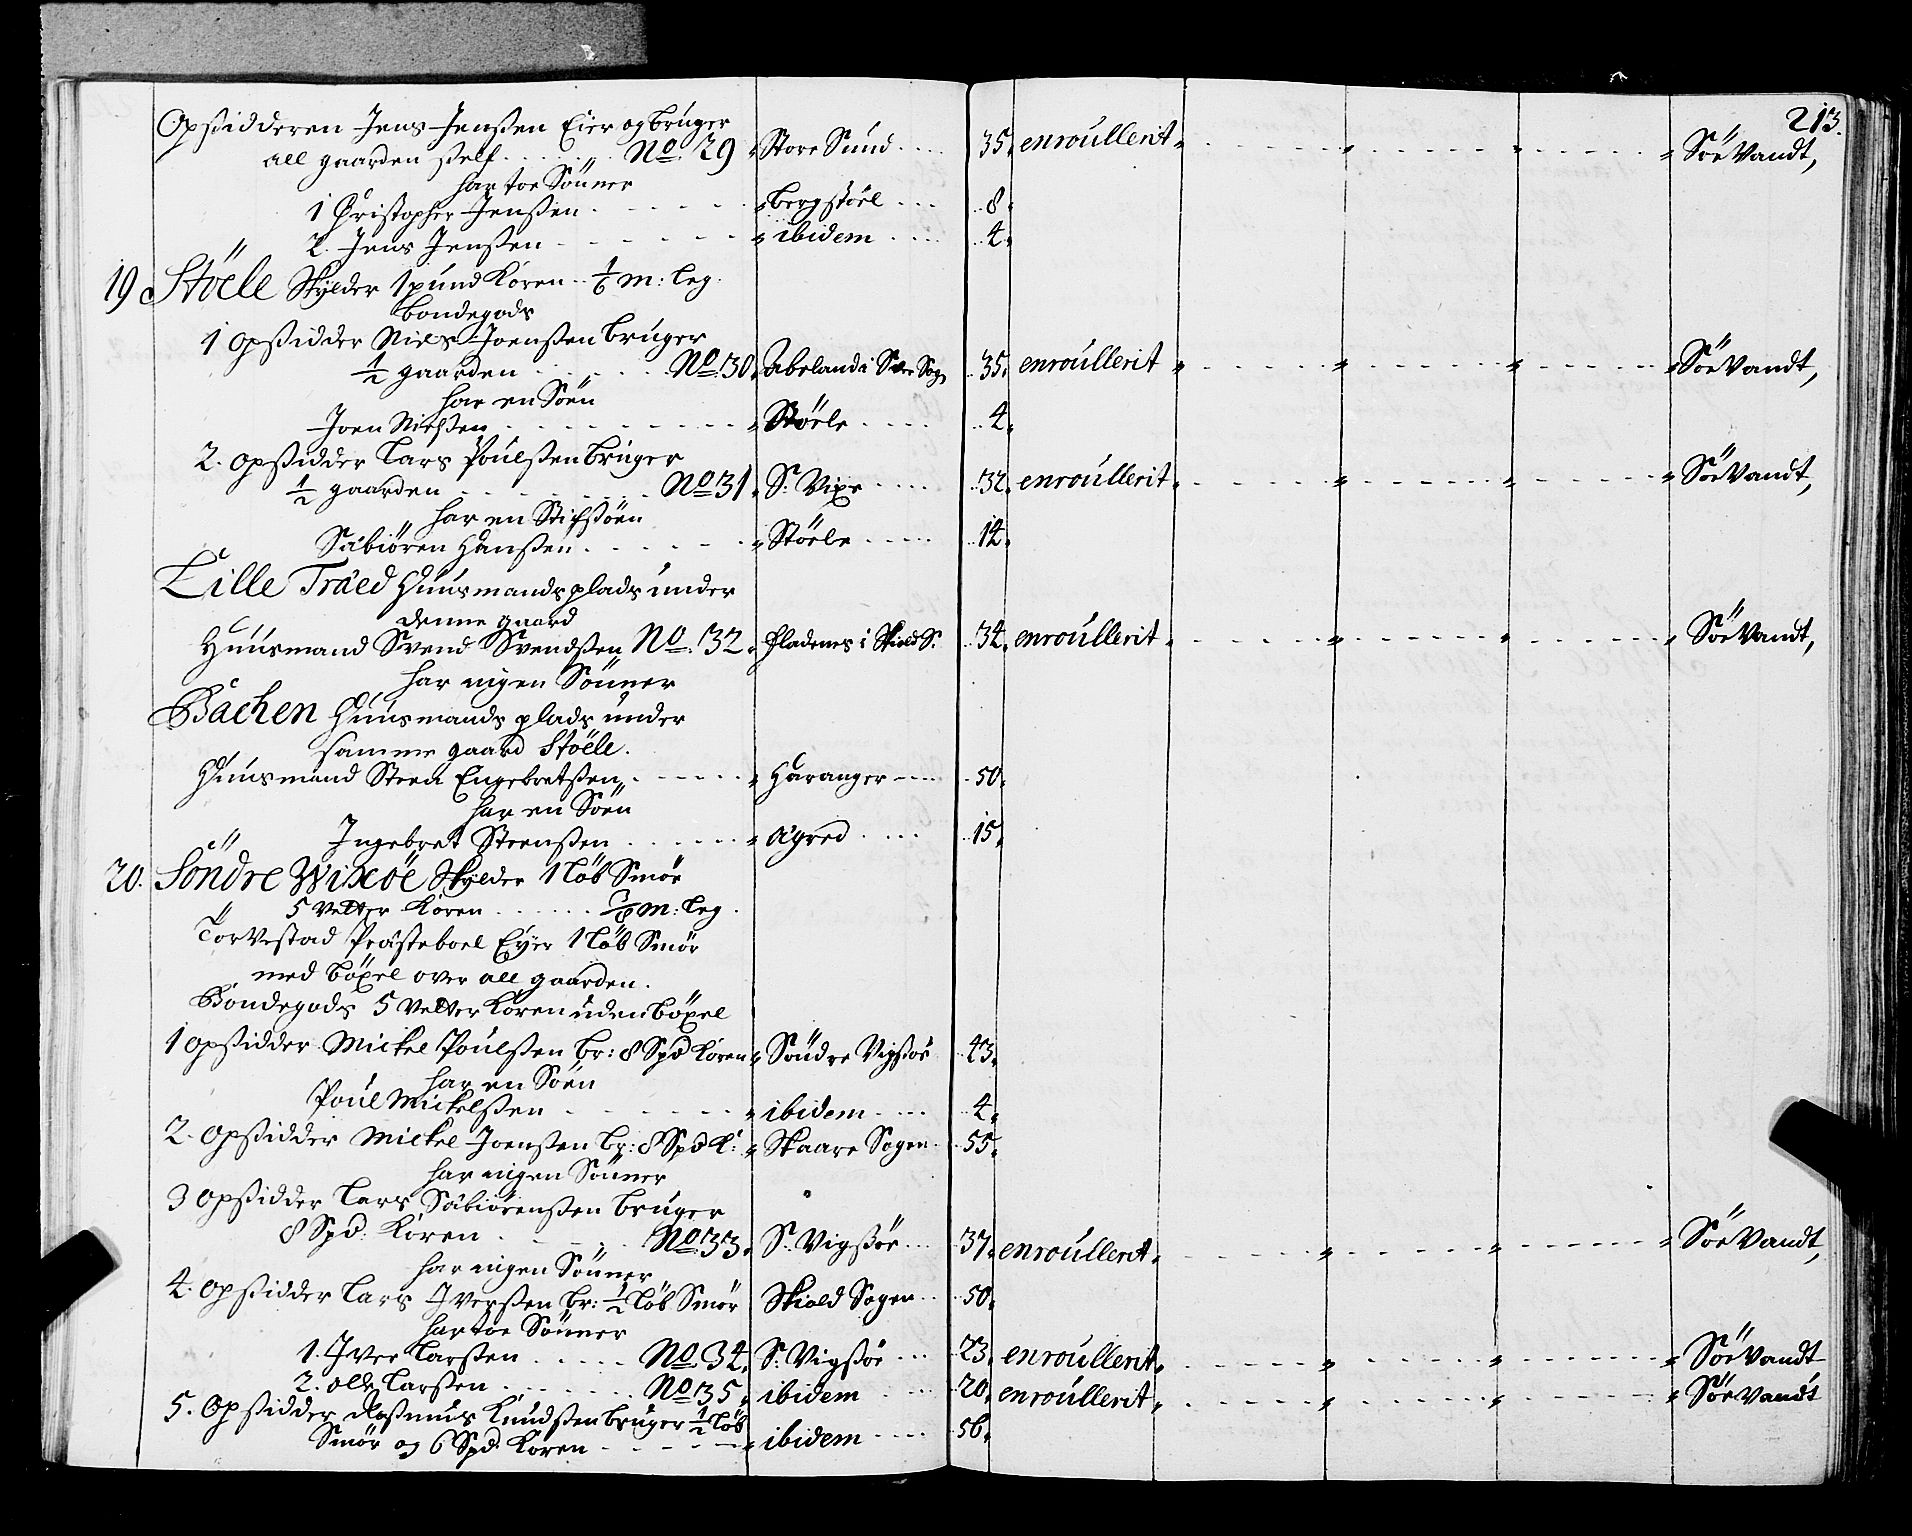 213.
Opsidderen Jens Jenssen Eier og brúger
all gaarden self . . . . . . No. 29 Store Sund . . . . 35. enroúllerit Söe Vandt,
har toe Sönner
1 Christopher Jenssen . . . . . . Bergstöel . . . 8.
2. Jens Jenssen . . . . . . ibidem . . . . 4.
19 Stöele Skylder 1 pund Koren . . 1/6 m: leg.
bondegods
1 Opsidder Niels Joenssen brúger
1/2 gaarden . . . . . . No. 30. Abeland i Sog. 35. enroúllerit Söe Vandt,
har en Söen
Joen Nielssen . . . . . . . . . Stöele . . . . 4.
2. Opsidder Lars Poúlssen brúger
1/2 gaarden . . . . . . . No. 31. S: Vixe . . . . 32. enroúllerit Söe Vandt,
har en Stifsöen
Säbiören Hanssen . . . . . . Stöele . . . . . 14.
Lille Träed Húusmandsplads under
denne gaard
Húusmand Svend Svendssen No. 32. Fladenes i Skiold S: 34. enroúllerit Söe Vandt,
har ingen Sönner
Bachen Húusmands plads únder
samme gaard Stöele.
Húusmand Steen Engebretssen . . . . . . Haranger . . . . . 50.
har en Söen
Ingebret Steenssen . . . . . . Agred . . . . 15.
20. Söndre Wixöe Skylder 1 Löb Smör
5 Vetter Koren . . . . . . m: leg.
Torvestad Prästeboel Eÿer 1 Löb Smör
med böxel over all gaarden.
Bondegods 5 Vetter Koren úden böxel
1 Opsidder Mickel Poúlssen br: 8 Spd Koren Söndre Vigssöe 43.
har en Söen
Poúl Mickelssen . . . . . . . ibidem . . . . 4.
2. Opsidder Mickel Joenssen br: 8 Spd K: Skaare Sogen . 55.
har ingen Sönner
3 Opsidder Lars Säbiörenssen brúger
8 Spd: Koren . . . . . No. 33. S: Vigssöe . . . 37. enroúllerit. Söe Vandt,
har ingen Sönner
4. Opsidder Lars Iverssen br: 1/2 Löb Smör Skiold Sogen . . 50.
har toe Sönner
1. Iver Larssen . . . . . No. 34. S: Vigssöe . . . 23. enroúllerit. Söe Vandt
2. Olle Larssen . . . . . . . No. 35. ibidem . . . . 20. enroúllerit. Söe Vandt
5. Opsidder Rasmús Knúdssen brúger 1/2 Löb
Smör og 6 Spd. Koren . . . . . . ibidem . . . . 56.